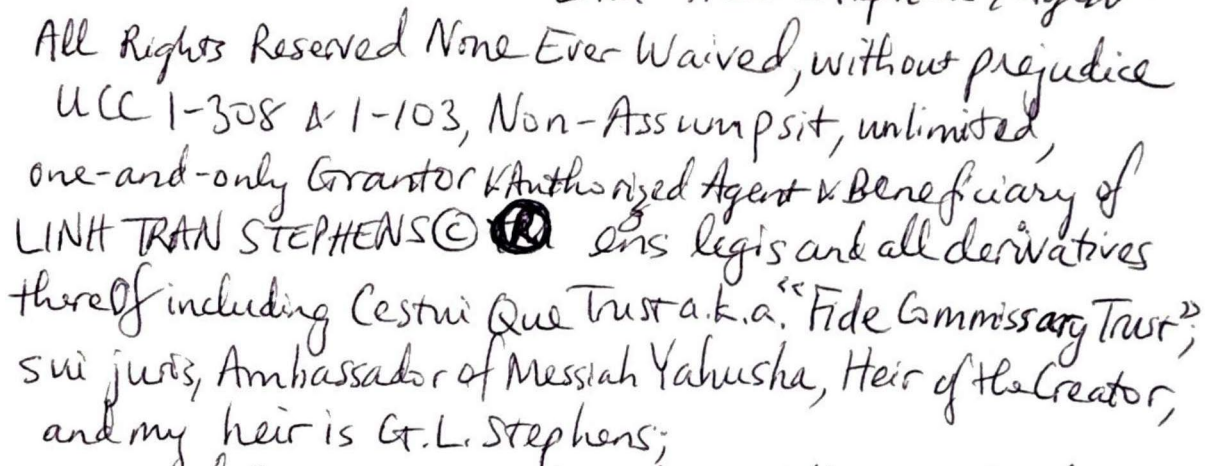 All Rights Reserved None Ever Waived, without prejudice
UCC 1-308 & 1-103, Non-Assumpsit, unlimited,
one-and-only Grantor & Authorized Agent & Beneficiary of
LINH TRAN STEPHENS © ® ens legis and all derivatives
thereof including Cestui Que Trust a.k.a. "Fide Commissary Trust";
sui juris, Ambassador of Messiah Yahusha, Heir of the Creator,
and my heir is G.L. Stephens;